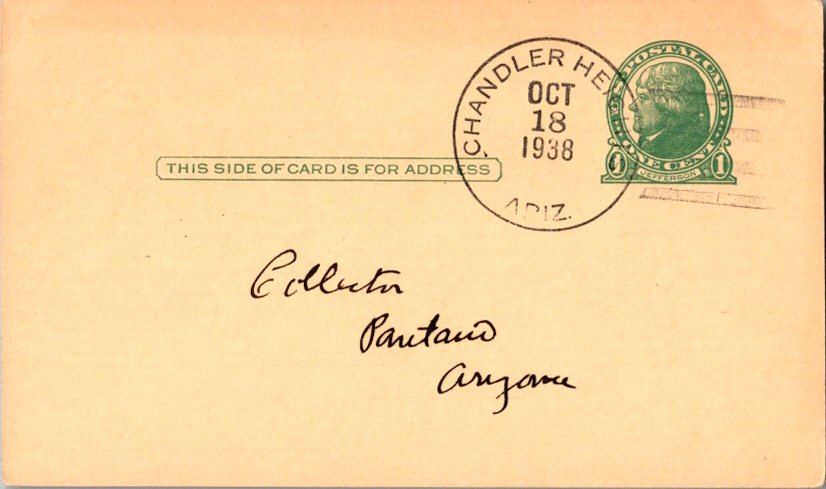 CHANDLER HEI
OCT
18
1938
ARIZ.
U.S. POSTAL CARD
ONE CENT
1 1
JEFFERSON
THIS SIDE OF CARD IS FOR ADDRESS
Collector
Pantano
Arizona